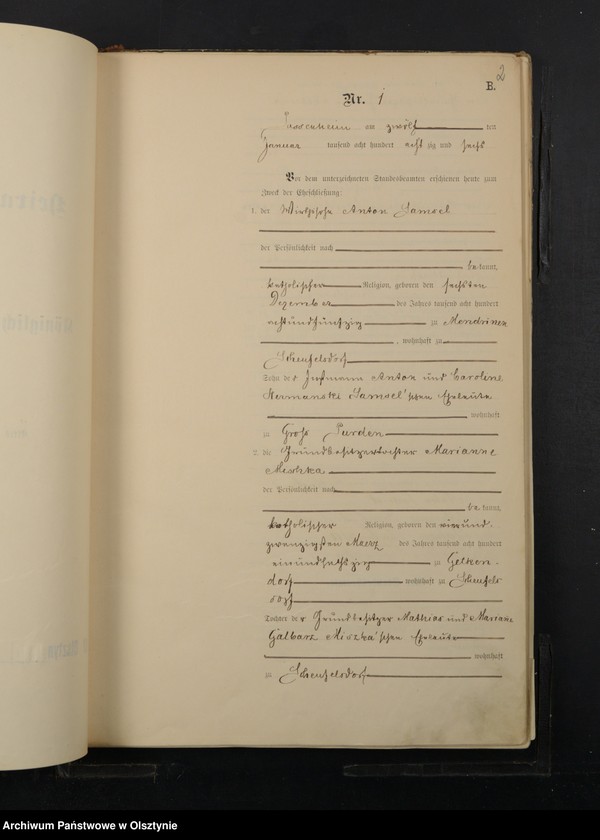 2
B.
Nr. 1
am zwölf ten
Januar tausend acht hundert acht zig und sechs
Vor dem unterzeichneten Standesbeamten erschienen heute zum
Zweck der Eheschließung:
1. der Wirthssohn Anton Samsel
der Persönlichkeit nach
be kannt,
katholischer Religion, geboren den sechsten
Dezember des Jahres tausend acht hundert
achtundfünfzig zu Mondrinen
, wohnhaft zu
Scheufelsdorf
Sohn der Anton und Caroline
Hermanski Samsel'schen Eheleute
wohnhaft
zu Groß Purden
2. die Grundbesitzertochter Marianne
Mischka
der Persönlichkeit nach
be kannt,
katholischer Religion, geboren den vierund-
zwanzigsten Maerz des Jahres tausend acht hundert
einundsechszig zu Gelken-
dorf wohnhaft zu Scheufels
dorf
Tochter der Grundbesitzer Mathias und Mariane
Galbarz Miszka'schen Eheleute
wohnhaft
zu Scheufelsdorf
Archiwum Państwowe w Olsztynie